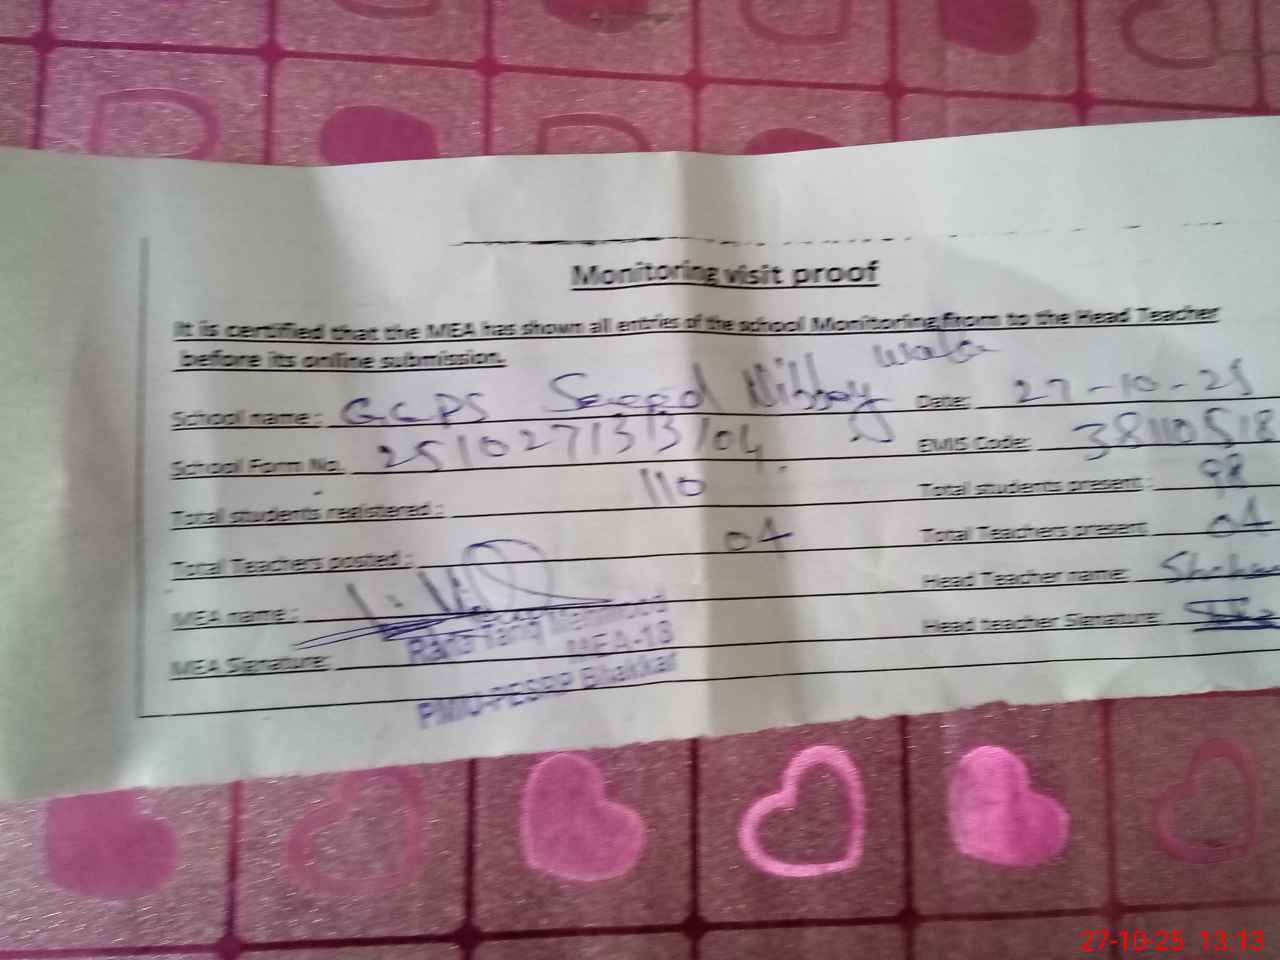 Monitoring visit proof
It is certified that the MEA has shown all entries of the school Monitoring from to the Head Teacher
before its online submission.
School name: GCPS Saeed Nibbay wala Date: 27-10-25
School Form No. 251027133104 EMIS Code: 38110518
Total students registered: 110 Total students present: 98
Total Teachers posted: 04 Total Teachers present 04
MEA name: Head Teacher name:
MEA Signature: Head teacher Signature:
Rana Tariq Mahmood
MEA-18
PMIU-PESRP Bhakkar
27-10-25 13:13